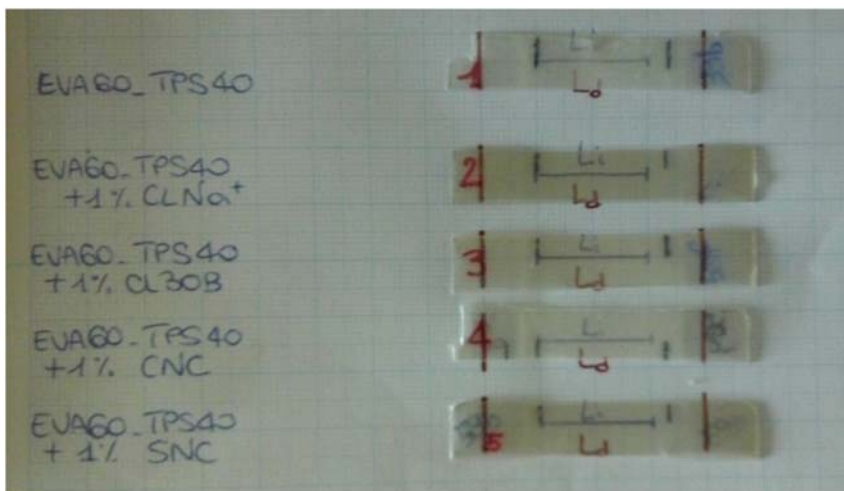 EVA60_TPS40
1
Li
Ld
EVA60_TPS40
+1% CLNa+
2
Li
Ld
EVA60_TPS40
+1% CL30B
3
Li
Ld
EVA60_TPS40
+1% CNC
4
Li
Ld
EVA60_TPS40
+ 1% SNC
5
Li
Ld